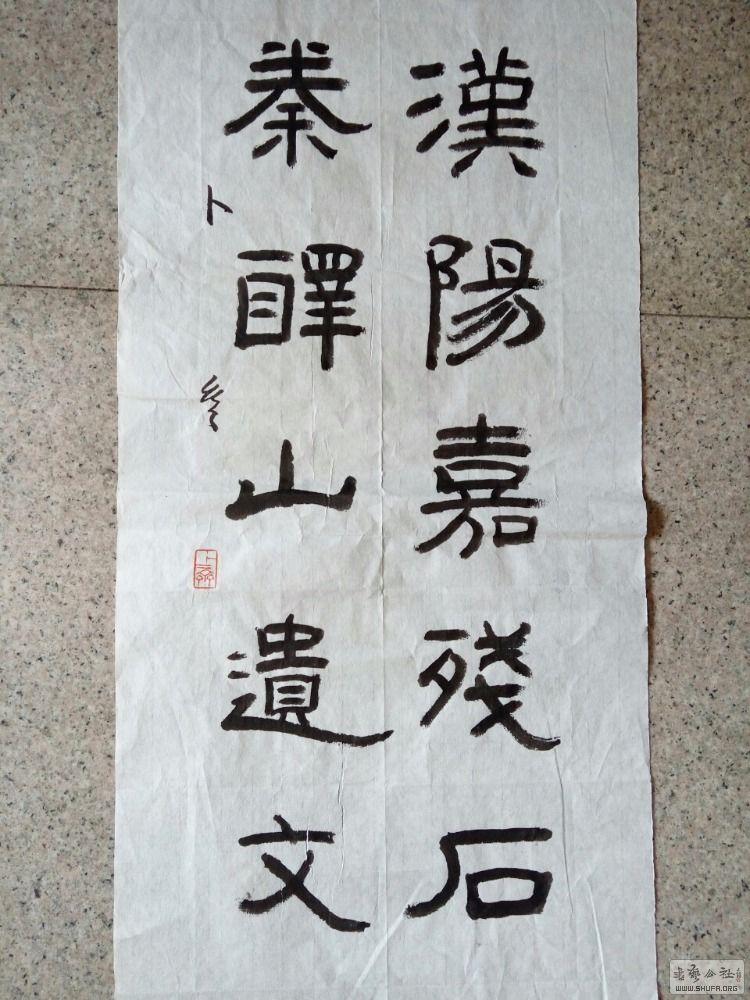 漢陽嘉殘石
秦醳山遺文
卜
书艺公社
WWW.SHUFA.ORG